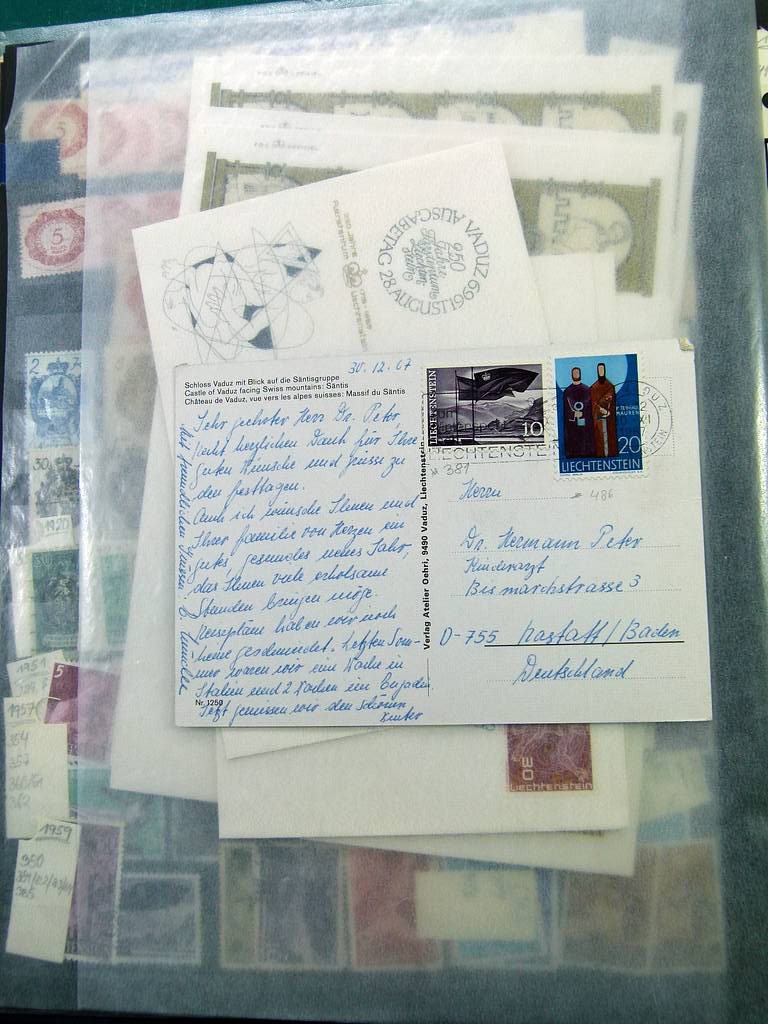 250 JAHRE
VADUZ AUSGABETAG 28.AUGUST 1969
250
Jahre
Fürstentum
Liechten
stein
5
2
30
1920
5
1951
1957
354
357
360/61
362
1959
350
351/52/53/
365
Schloss Vaduz mit Blick auf die Säntisgruppe
Castle of Vaduz facing Swiss mountains: Säntis
Château de Vaduz, vue vers les alpes suisses: Massif du Säntis
30.12.67
Sehr geehrter Herr Dr. Peter,
recht herzlichen Dank für Ihre
guten Wünsche und grüsse zu
den festtagen.
Auch ich wünsche Ihnen und
Ihrer familie von Herzen ein
gutes, gesundes neues Jahr,
das Ihnen viele erholsame
Stunden bringen möge.
Reisepläne haben wir noch
keine geschmiedet. Letzten Som-
mer waren wir eine Woche in
Italien und 2 Wochen im Engadin
Jetzt geniessen wir den schönen
Winter
Mit freundlichen Grüssen
Nr. 1250
Verlag Atelier Oehri, 9490 Vaduz, Liechtenstein
LIECHTENSTEIN
10
LIECHTENSTEIN
381
P. T. BÜHAUS
MAUREN
20
LIECHTENSTEIN
VADUZ
486
Herrn
Dr. Hermann Peter
Kinderarzt
Bismarckstrasse 3
D-755 Rastatt/Baden
Deutschland
30
Liechtenstein